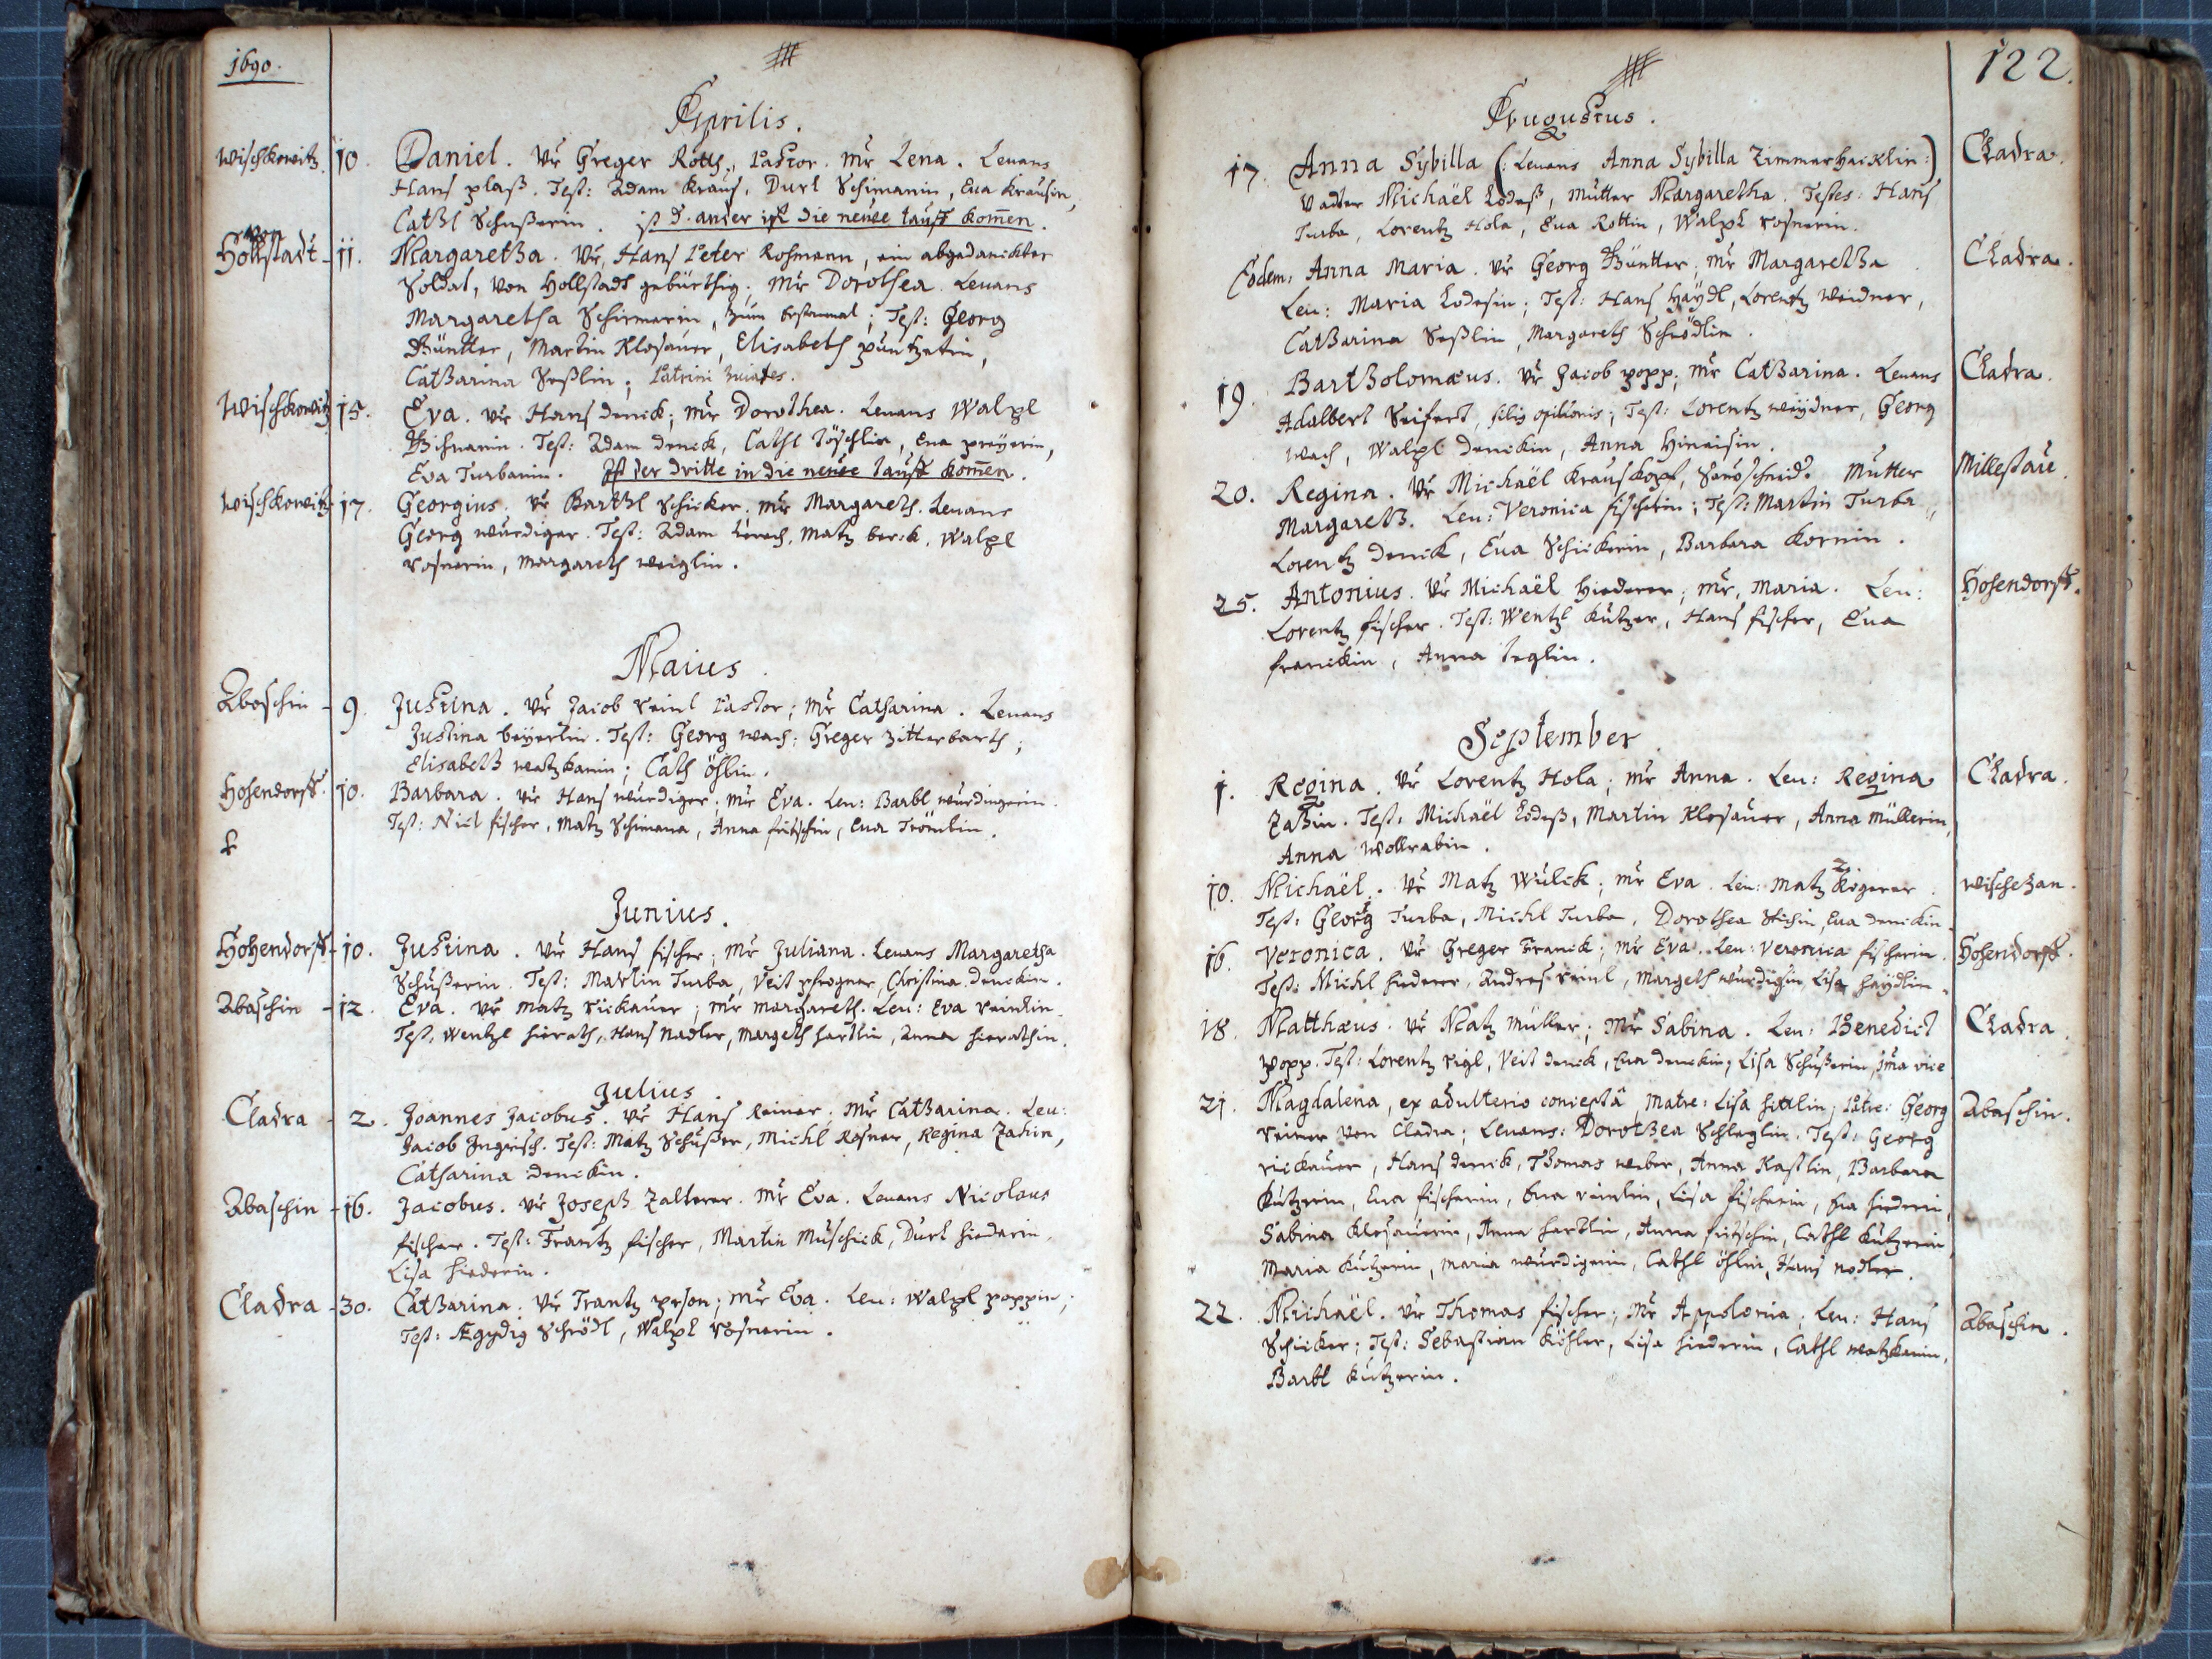 1690.
Aprilis.
Wischkowitz 10. Daniel. Vr Greger Roth, Pastor. Mr Lena. Levans
Hans plaß. Test: Adam Kraus, Durl Schimanin, Eva Krausin,
Cathl Schusterin. ist d. ander ist die neüe tauff kom̅en.
von Hollstadt - 11. Margaretha. Vr, Hans Peter Rosmann, ein abgedanckter
Soldat, von Hollstadt gebürthig; Mr Dorothea. Levans
Margaretha Schirmerin, zum; Test: Georg
Büntter, Martin Klosauer, Elisabeth,
Catharina Seßlin; Patrini.
Wischkowitz 15. Eva. Vr Hans Denck; Mr Dorothea. Levans Walpl
Test: Adam Denck, Cathl Töschlin, Eva preyerin,
Eva Turbanin. Ist der dritte in die neüe tauff kom̅en.
Wischkowitz 17. Georgius. Vr Barthl Schicker. Mr Margareth. Levans
Georg würdiger. Test: Adam, Matz, Walpl
Rosnerin, Margareth weiglin.
Maius
Aboschin - 9. Justina. Vr Jacob Reinl Pastor; Mr Catharina. Levans
Justina beyerlin. Test: Georg wach; Greger Zitterbarth;
Elisabeth watzkanin; Cath öhlin.
Hohendorff. 10. Barbara. Vr Hans würdiger. Mr Eva. Lev: Barbl würdingerin.
Test: Nicl fischer, Matz Schimana, Anna fritschin, Eva Trömlin.
Junius.
Hohendorff - 10. Justina. Vr Hans fischer; Mr Juliana. Levans Margaretha
Schusterin. Test: Martin Turba, Veit pfrogner, Christina Denckin.
Abaschin - 12. Eva. Vr Matz Rickauer; Mr Margareth. Lev: Eva Reinlin.
Test. Wentzl hierath, Hans Nadler, Margeth hartlin, Anna hierathin.
Julius
Cladra - 2. Joannes Jacobus. Vr Hans Reiner. Mr Catharina. Lev:
Jacob Ingrisch. Test: Matz Schuster, Michl Rosner, Regina Zahin,
Catharina Denckin.
Abaschin - 16. Jacobus. Vr Joseph Zalterer. Mr Eva. Levans Nicolaus
fischer. Test: Frantz fischer, Martin Muschick, Durl hiederin,
Lisa hiederin.
Cladra - 30. Catharina. Vr Frantz; Mr Eva. Lev: Walpl poppin;
Test: Ægydig Schrödl, Walpl Rosnerin.
122.
Augustus.
17. Anna Sybilla (: Levans Anna Sybilla Zimmerhacklin:) Cladra.
Vatter Michaël Lodeß, Mutter Margaretha. Testes: Hans
Turba, Lorentz Hola, Eva Rottin, Walpl Rosnerin.
Eodem: Anna Maria. Vr Georg Büntter; Mr Margaretha Cladra.
Lev: Maria Lodesin; Test: Hans Haÿdl, Lorentz Weidner,
Catharina Seßlin, Margareth Schrödlin.
19. Bartholomæus. Vr Jacob popp; Mr Catharina. Levans Cladra.
Adalbert Seifert, filig opilionis; Test: Lorentz weÿdner, Georg
wach, Walpl Denckin, Anna.
20. Regina. Vr Michaël Krauskopf,. Mutter Millestau.
Margareth. Lev: Veronica fischerin; Test: Martin Turba,
Lorentz Denck, Eva Schickerin, Barbara Kornin.
25. Antonius. Vr Michaël Hiederer; Mr, Maria. Lev: Hohendorff.
Lorentz fischer. Test: Wentzl Kutzer, Hans fischer, Eva
franckin, Anna.
September
1. Regina. Vr Lorentz Hola; Mr Anna. Lev: Regina Cladra.
Zahin. Test: Michaël Lodeß, Martin Klosauer, Anna Müllerin,
Anna Wollrabin.
10. Michaël. Vr Matz Wülck; Mr Eva. Lev: Matz Wischezan.
Test: Georg Turba, Michl Turba, Dorothea, Eva Denckin.
16. Veronica. Vr Greger Franck; Mr Eva. Lev: Veronica fischerin. Hohendorff.
Test: Michl hiederer, Andres Reinl, Margeth würdigin, Lisa haÿdlin.
18. Matthæus. Vr Matz Müller; Mr Sabina. Lev: Benedict Cladra
popp. Test: Lorentz Rigl, Veit Denck, Eva Denckin; Lisa Schusterin, 1ma vice
21. Magdalena, ex adulterio conceptâ, Matre: Lisa hittlin; Patre: Georg Abaschin.
Reiner von Cladra; Levans: Dorothea Schleglin. Test: Georg
Rickauer, Hans Denck, Thomas weber, Anna Kastlin, Barbara
Kutzerin, Eva fischerin, Eva Reinlin, Lisa fischerin, Eva hiederin,
Sabina Klosauerin, Anna hartlin, Anna fritschin, Cathl Kutzerin,
Maria Kutzerin, Maria würdigerin, Cathl öhlin, Hans nodler.
22. Michaël. Vr Thomas fischer; Mr Appolonia; Lev: Hans Abaschin.
Schicker; Test: Sebastian Köhler, Lisa hiederin, Cathl watzkanin,
Barbl Kutzerin.